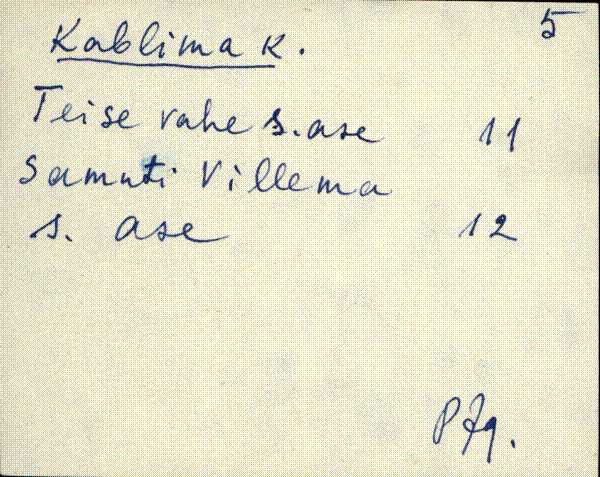 5
Kablima k.
Teise vahe s. ase 11
Samuti Villema
s. ase 12